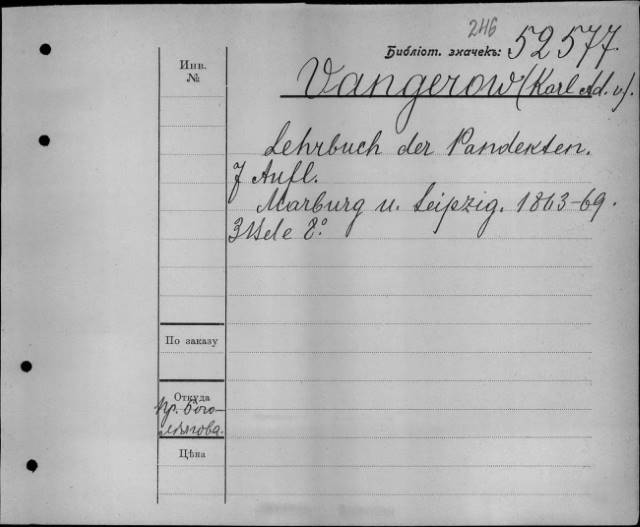 246
Библіот. значекъ: 52577.
Инв. №
Vangerow (Karl Ad. v).
Lehrbuch der Pandekten.
7 Aufl.
Marburg u. Leipzig. 1863-69.
3 Bde 8°
По заказу
Откуда
Пр. Бого-
лѣпова.
Цѣна